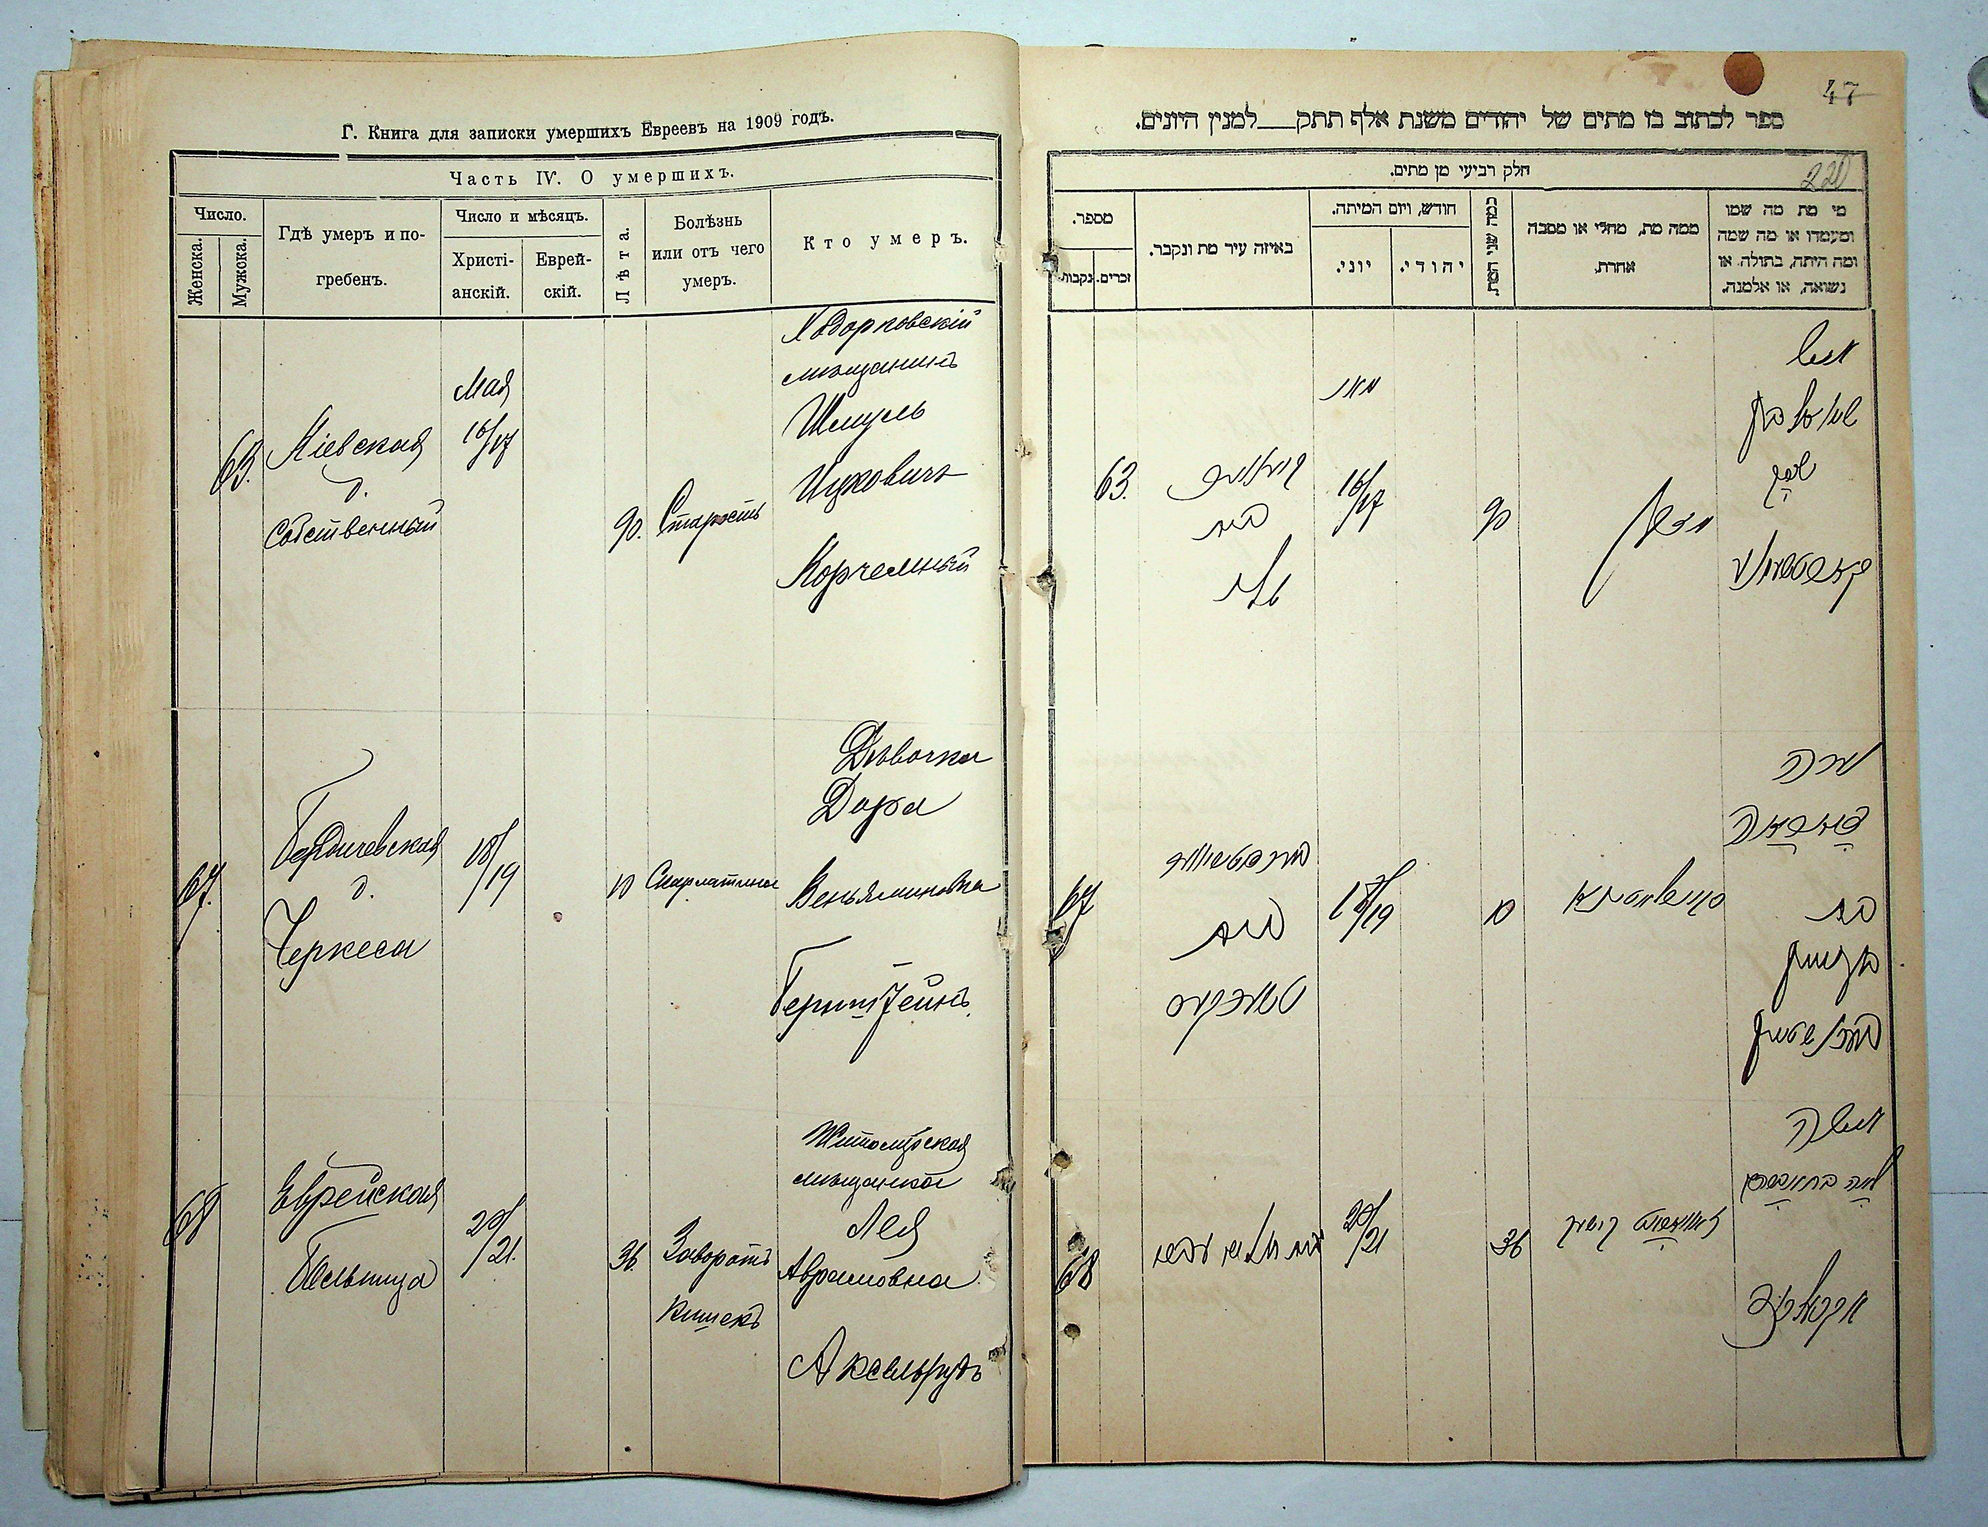 Г. Книга для записки умершихъ Евреевъ на 1909 годъ.
Часть IV. О умершихъ.
Число.
Женска.
Мужска.
Гдѣ умеръ и по-
гребенъ.
Число и мѣсяцъ.
Христі-
анскій.
Еврей-
скій.
Лѣта.
Болѣзнь
или отъ чего
умеръ.
Кто умеръ.
63.
Кіевская
д.
Собственный
Мая
16/17
90.
Старость
Ходорковскій
мѣщанинъ
Шмуль
Ицковичъ
Корчемный
67.
Бердичевская
д.
Черкеса
18/19
10
Скарлатина
Дѣвочка
Дора
Веньяминовна
Бернштейнъ.
68
Еврейская
Больница
20/21.
36.
Заворотъ
кишекъ
Житомірская
мѣщанка
Лея
Аврамовна
Аксельрудъ
47
ספר לכתוב בו מתים של יהודים משנת אלף תתק למנין היונים.
220
חלק רביעי מן מתים.
מספר.
נקבות.
זכרים.
באיזה עיר מת ונקבר.
חודש, ויום המיתה.
יוני.
יהודי.
כמה שני המת.
ממה מת, מחלי או מסבה
אחרת.
מי מת מה שמו
ומעמדו או מה שמה
ומה היתה, בתולה או
נשואה, או אלמנה.
63.
בית
מאי
16/17
90
איש
שמואל בן
67
בית
18/19
10
בת
בנימין
בערנשטיין
68
20/21
36
אשה